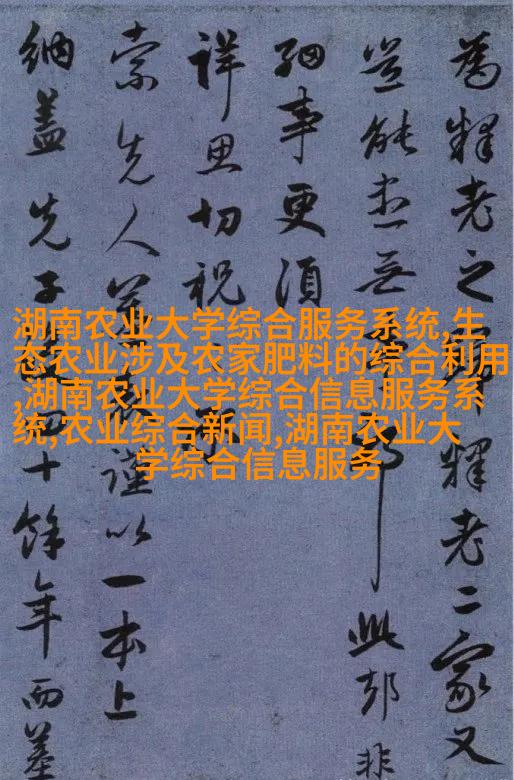 為釋老之
釋老二家又
豈能盡無
此部非
細事更須
詳思切祝
索先人
謹以一本上
納蓋先子
四十餘年而
湖南农业大学综合服务系统,生
态农业涉及农家肥料的综合利用
,湖南农业大学综合信息服务系
统,农业综合新闻,湖南农业大
学综合信息服务